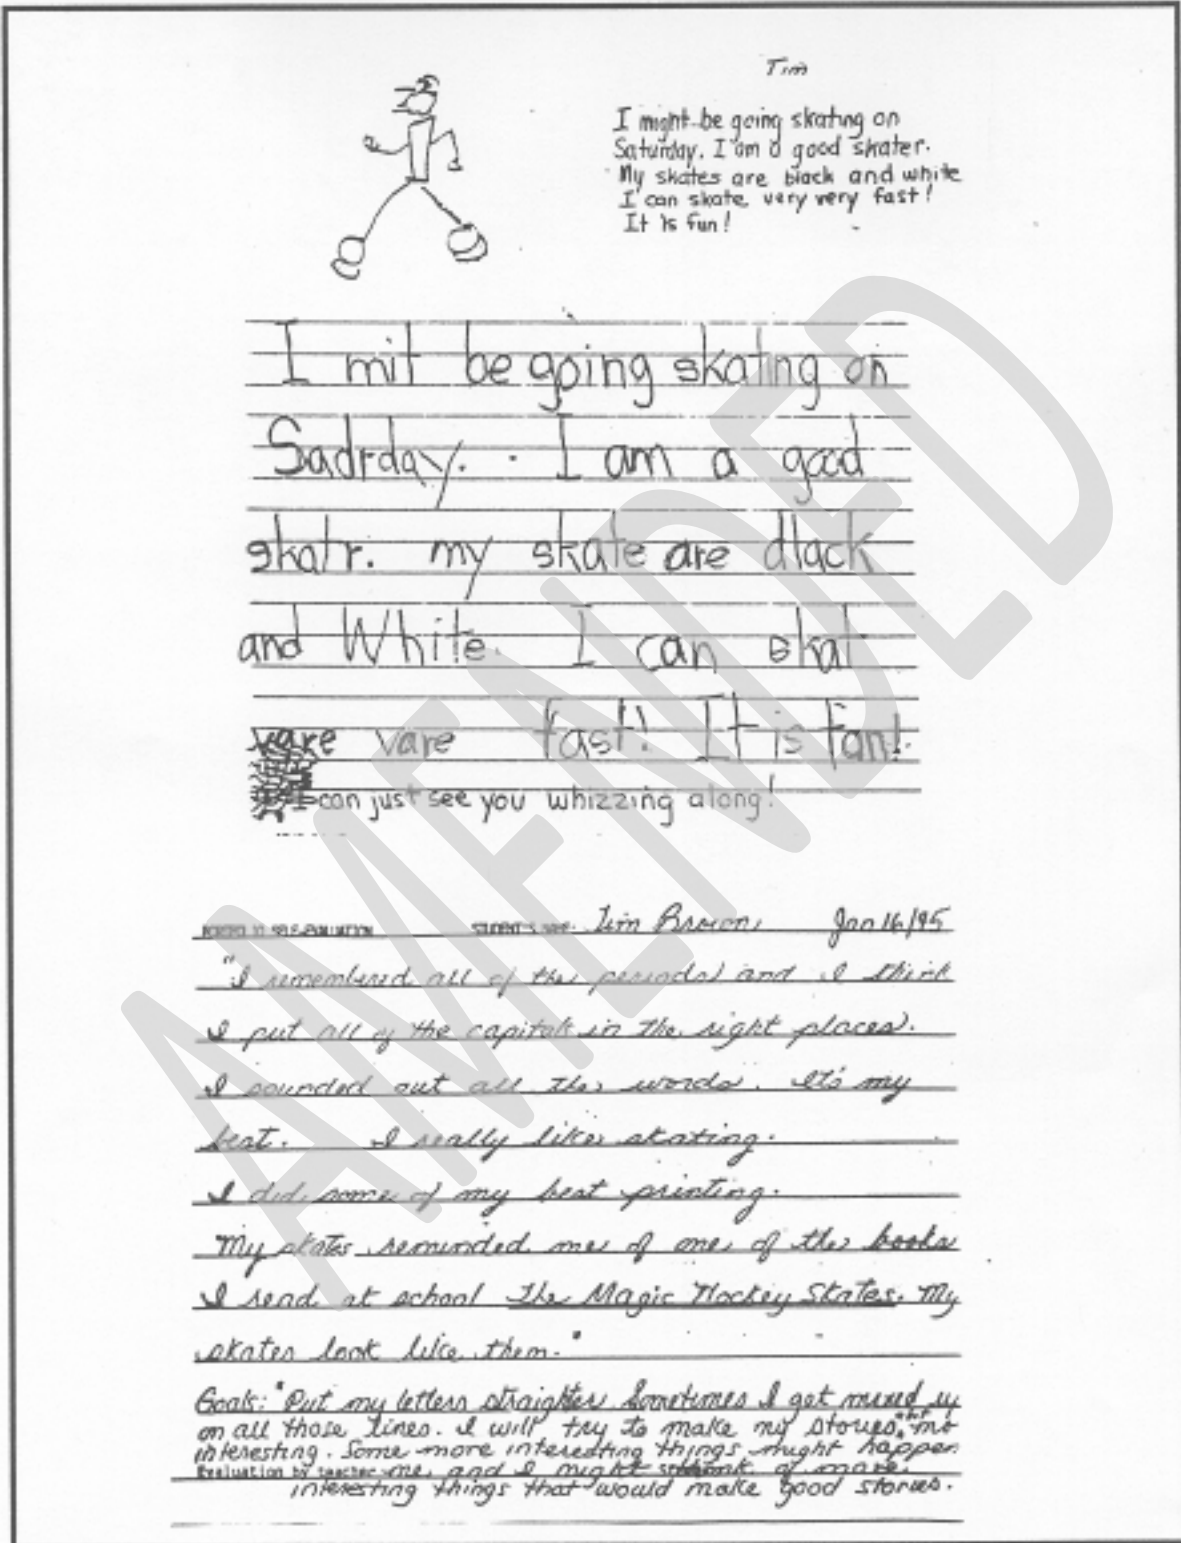 Tim
I might be going skating on
Saturday. I am a good skater.
My skates are black and white
I can skate very very fast!
It is fun!
I mit be going skating on
Sadrday. I am a good
skatr. my skate are dlack
and White. I can skat
vare vare fast! It is fan!
I can just see you whizzing along!
STUDENT'S NAME: Tim Brown Jan 16/95
"I remembered all of the periods and I think
I put all of the capitals in the right places.
I sounded out all the words. It's my
best. I really like skating.
I did some of my best printing.
My skates reminded me of one of the books
I read at school The Magic Hockey Skates. My
skates look like them."
Goals: "Put my letters straighter. Sometimes I get mixed up
on all those lines. I will try to make my stories
interesting. Some more interesting things might happen
Evaluation by teacher me, and I might think of more
interesting things that would make good stories.
AMENDED